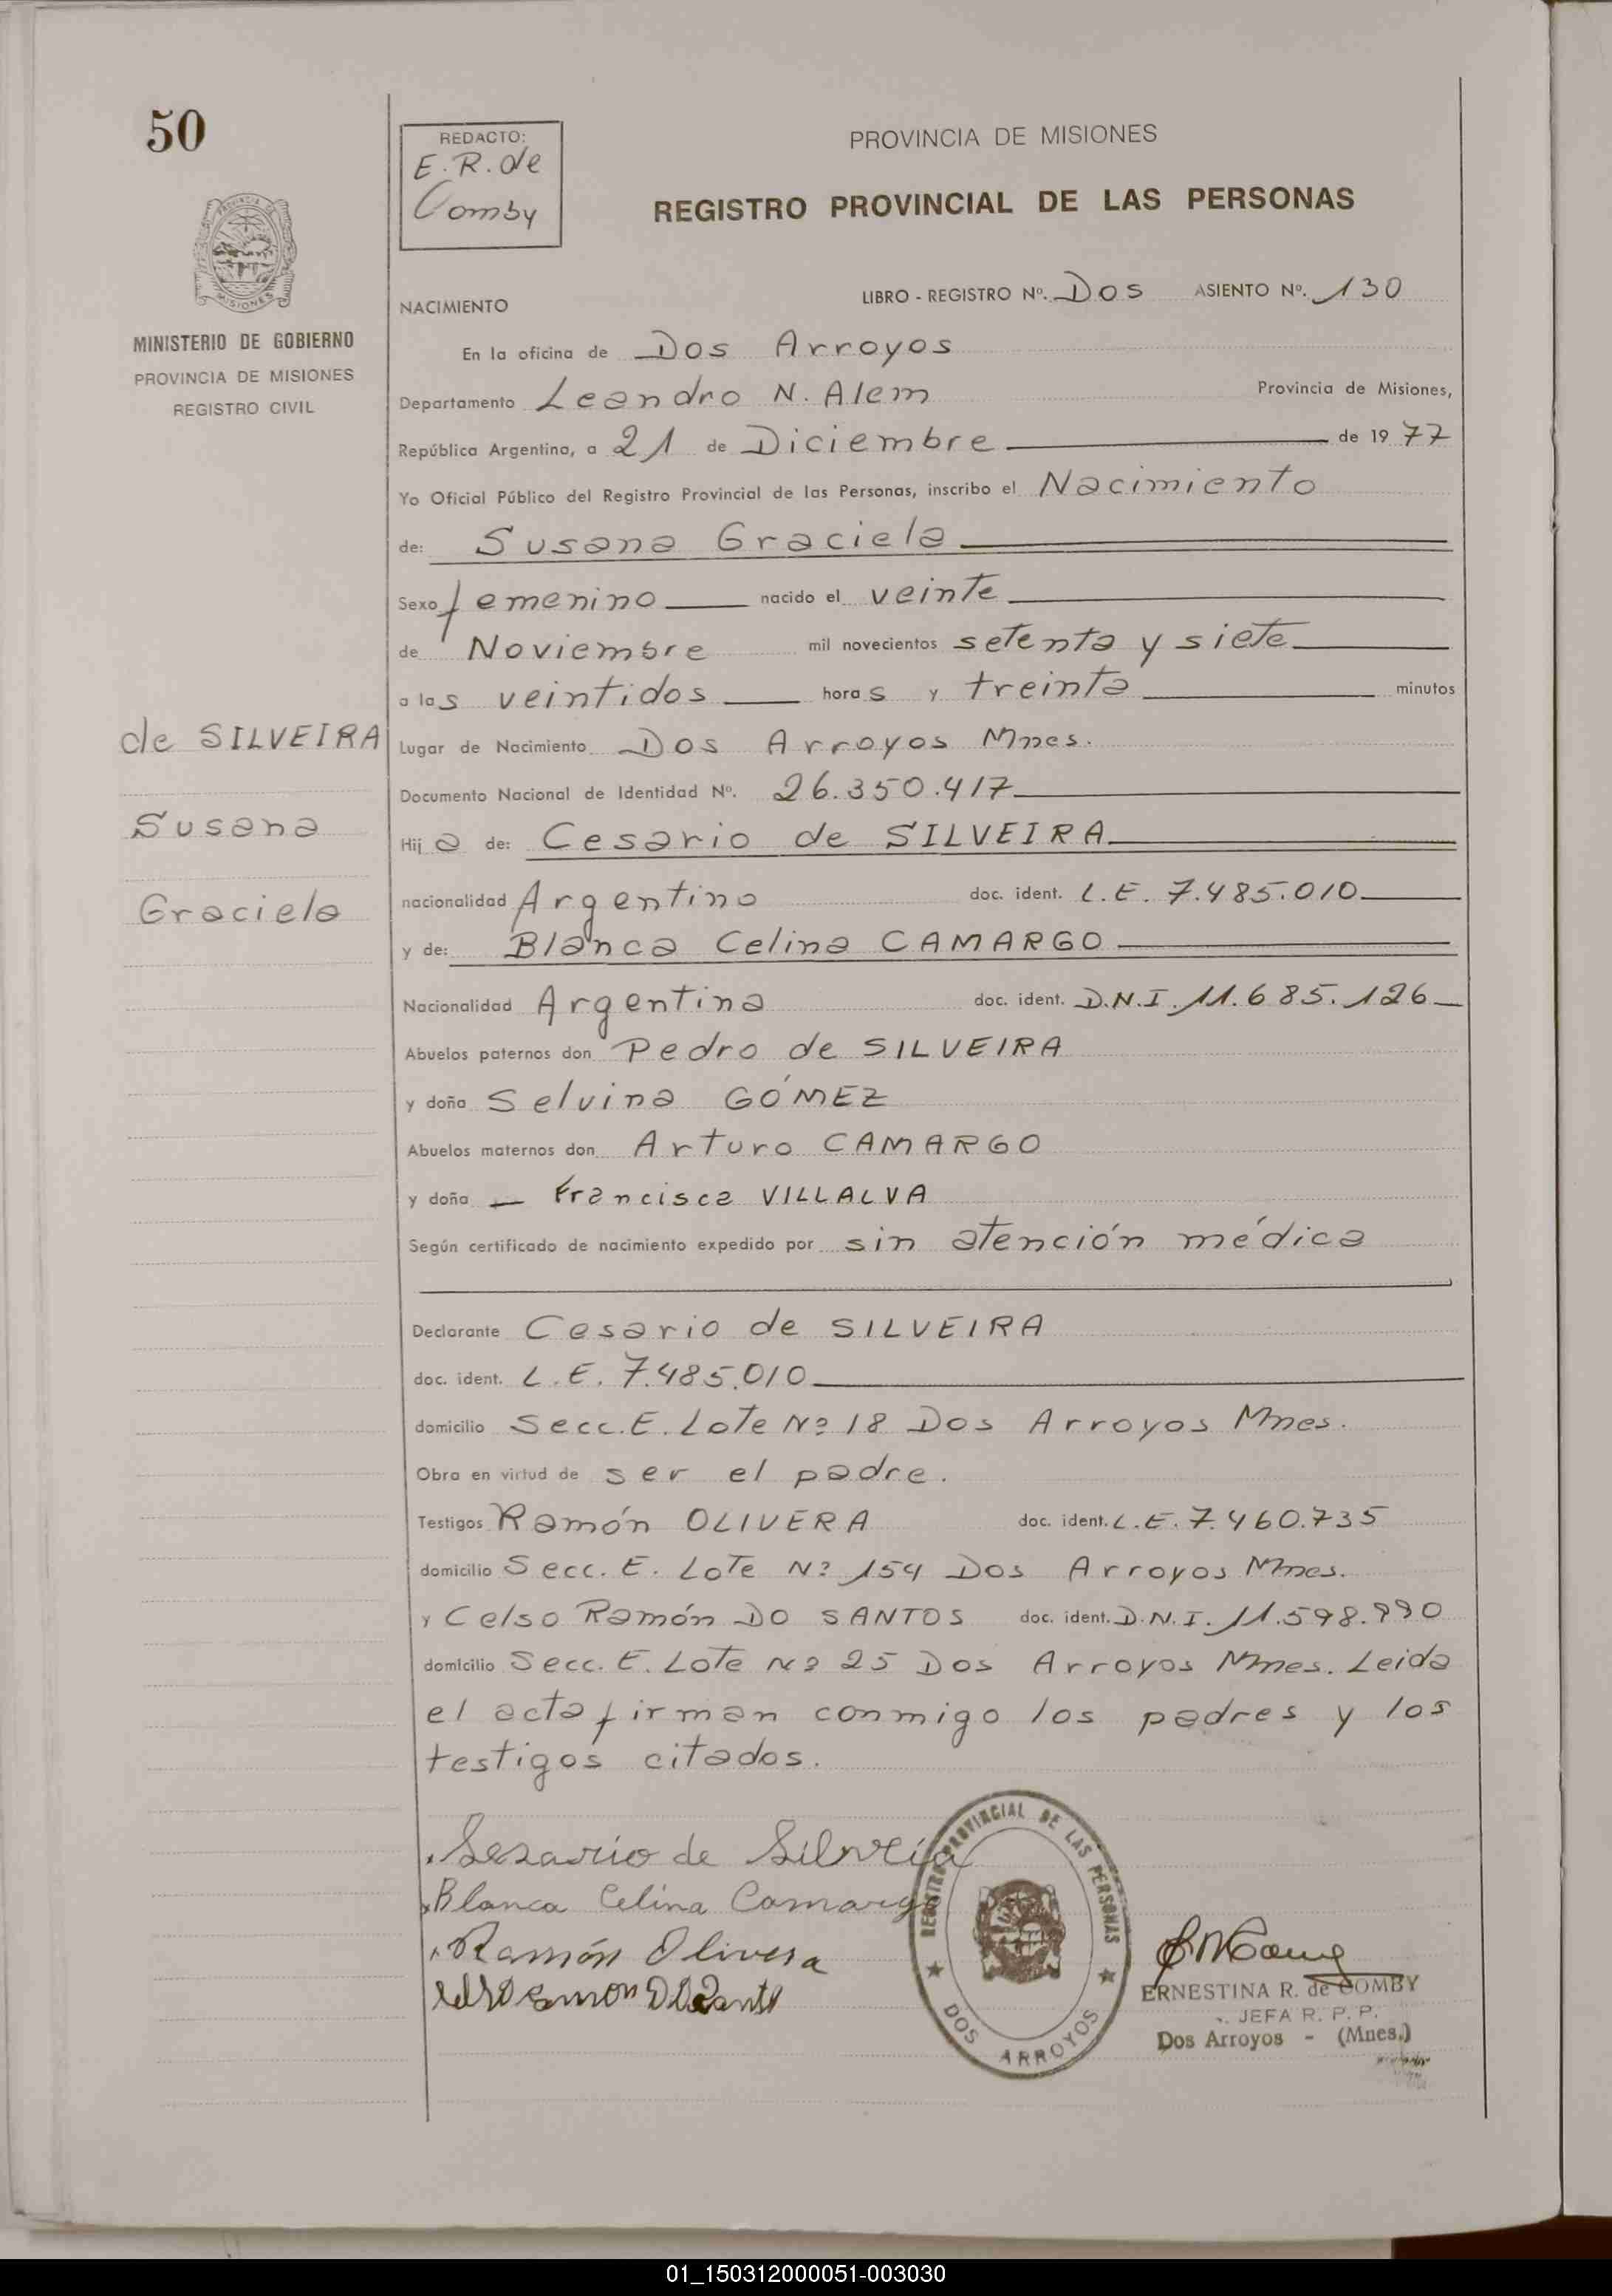 50
REDACTO:
E.R. de
Comby
PROVINCIA DE MISIONES
REGISTRO PROVINCIAL DE LAS PERSONAS
PROVINCIA DE
MISIONES
MINISTERIO DE GOBIERNO
PROVINCIA DE MISIONES
REGISTRO CIVIL
LIBRO - REGISTRO Nº. Dos ASIENTO Nº. 130
NACIMIENTO
En la oficina de Dos Arroyos
Departamento Leandro N. Alem Provincia de Misiones,
República Argentina, a 21 de Diciembre de 19 77
Yo Oficial Público del Registro Provincial de las Personas, inscribo el Nacimiento
de: Susana Graciela
Sexo femenino nacido el veinte
de Noviembre mil novecientos setenta y siete
a las veintidos horas y treinta minutos
de SILVEIRA
Susana
Graciela
Lugar de Nacimiento Dos Arroyos Mnes.
Documento Nacional de Identidad Nº. 26.350.417
Hija de: Cesario de SILVEIRA
nacionalidad Argentino doc. ident. L.E. 7.485.010
y de: Blanca Celina CAMARGO
Nacionalidad Argentina doc. ident. D.N.I. 11.685.126
Abuelos paternos don Pedro de SILVEIRA
y doña Selvina GÓMEZ
Abuelos maternos don Arturo CAMARGO
y doña — Francisca VILLALVA
Según certificado de nacimiento expedido por sin atención médica
Declarante Cesario de SILVEIRA
doc. ident. L.E. 7.485.010
domicilio Secc. E. Lote Nº 18 Dos Arroyos Mnes.
Obra en virtud de ser el padre.
Testigos Ramón OLIVERA doc. ident. L.E. 7.460.735
domicilio Secc. E. Lote Nº 154 Dos Arroyos Mnes.
y Celso Ramón DO SANTOS doc. ident. D.N.I. 11.598.990
domicilio Secc. E. Lote Nº 25 Dos Arroyos Mnes. Leida
el acta firman conmigo los padres y los
testigos citados.
Sezario de Silveia
Blanca Celina Camargo
Ramón Olivera
REGISTRO PROVINCIAL DE LAS PERSONAS
DOS ARROYOS
ERNESTINA R. de COMBY
JEFA R. P. P.
Dos Arroyos - (Mnes.)
01_150312000051-003030